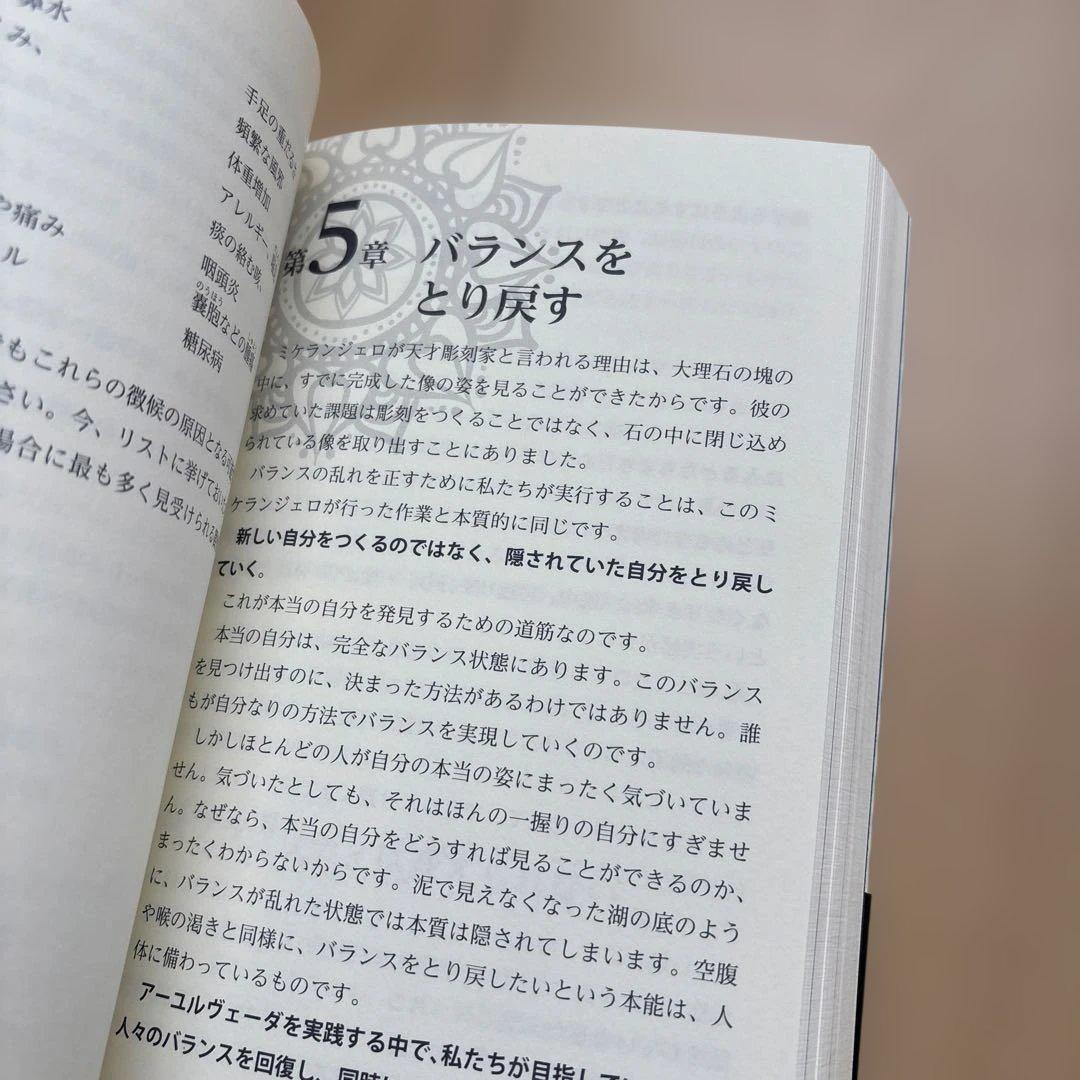 鼻水
み、
や痛み
ル
もこれらの徴候の原因となる
さい。今、リストに挙げてお
場合に最も多く見受けられる
手足の重だるさ
頻繁な風邪
体重増加
アレルギー、
痰の絡む咳、
咽頭炎
のうほう
嚢胞などの
糖尿病
第5章 バランスを
とり戻す
ミケランジェロが天才彫刻家と言われる理由は、大理石の塊の
中に、すでに完成した像の姿を見ることができたからです。彼の
求めていた課題は彫刻をつくることではなく、石の中に閉じ込め
られている像を取り出すことにありました。
バランスの乱れを正すために私たちが実行することは、このミ
ケランジェロが行った作業と本質的に同じです。
新しい自分をつくるのではなく、隠されていた自分をとり戻し
ていく。
これが本当の自分を発見するための道筋なのです。
本当の自分は、完全なバランス状態にあります。このバランス
を見つけ出すのに、決まった方法があるわけではありません。誰
もが自分なりの方法でバランスを実現していくのです。
しかしほとんどの人が自分の本当の姿にまったく気づいていま
せん。気づいたとしても、それはほんの一握りの自分にすぎませ
ん。なぜなら、本当の自分をどうすれば見ることができるのか、
まったくわからないからです。泥で見えなくなった湖の底のよう
に、バランスが乱れた状態では本質は隠されてしまいます。空腹
や喉の渇きと同様に、バランスをとり戻したいという本能は、人
体に備わっているものです。
アーユルヴェーダを実践する中で、私たちが目指して
人々のバランスを回復し、同時に